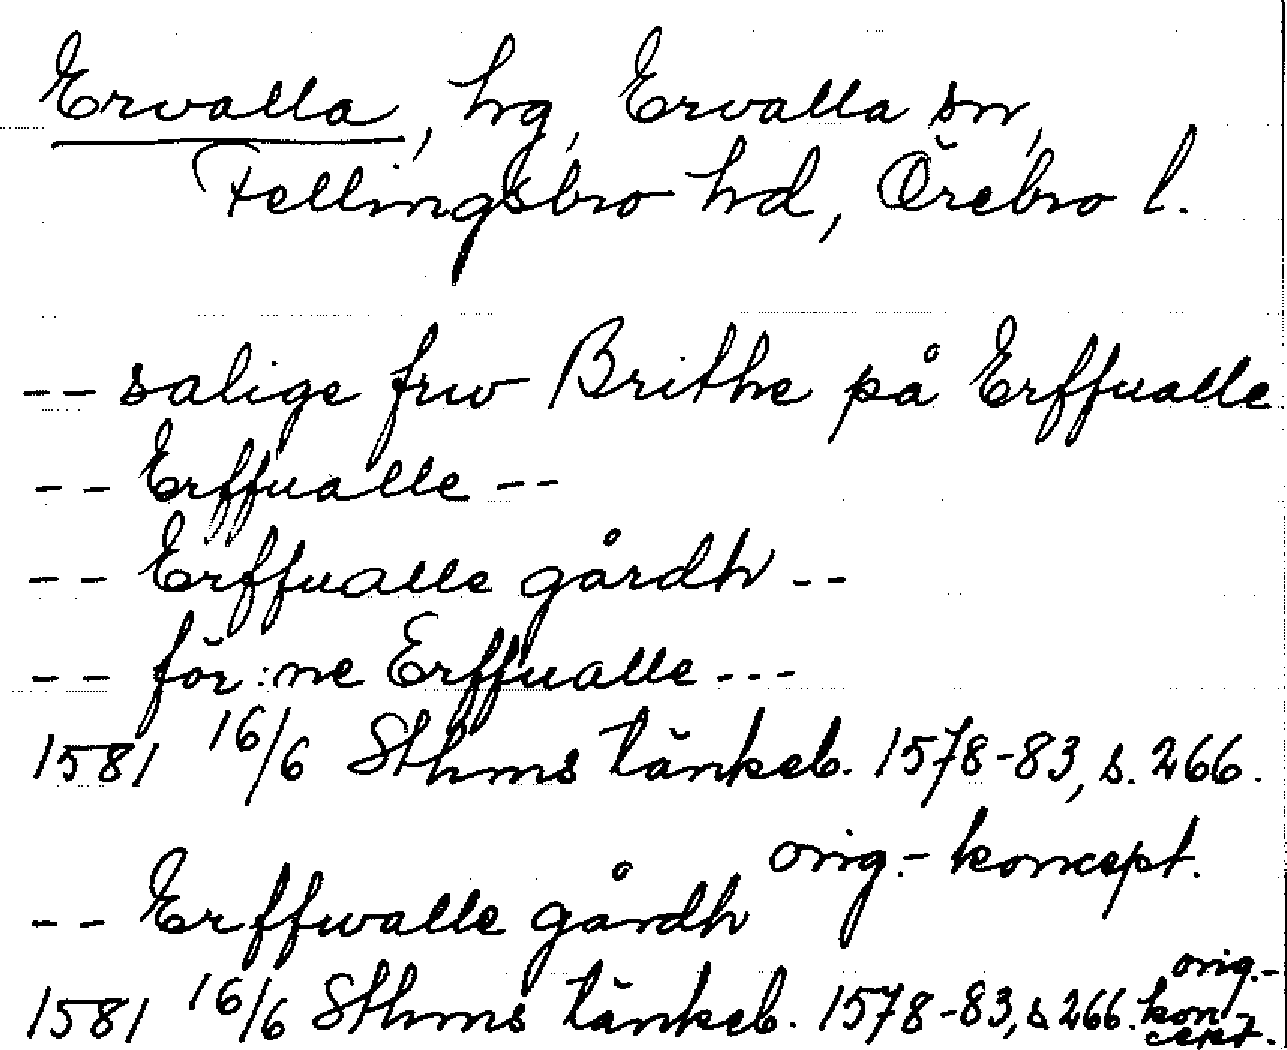 Ervalla, hg, Ervalla sn,
Fellingsbro hd, Örebro l.
-- salige frw Brithe på Erffualle
-- Erffualle --
-- Erffualle gårdh --
-- för:ne Erffualle ---
1581 16/6 Sthms tänkeb. 1578-83, s. 266.
orig.- koncept.
-- Erffwalle gårdh
1581 16/6 Sthms tänkeb. 1578-83, s. 266. orig.-
kon-
cept.